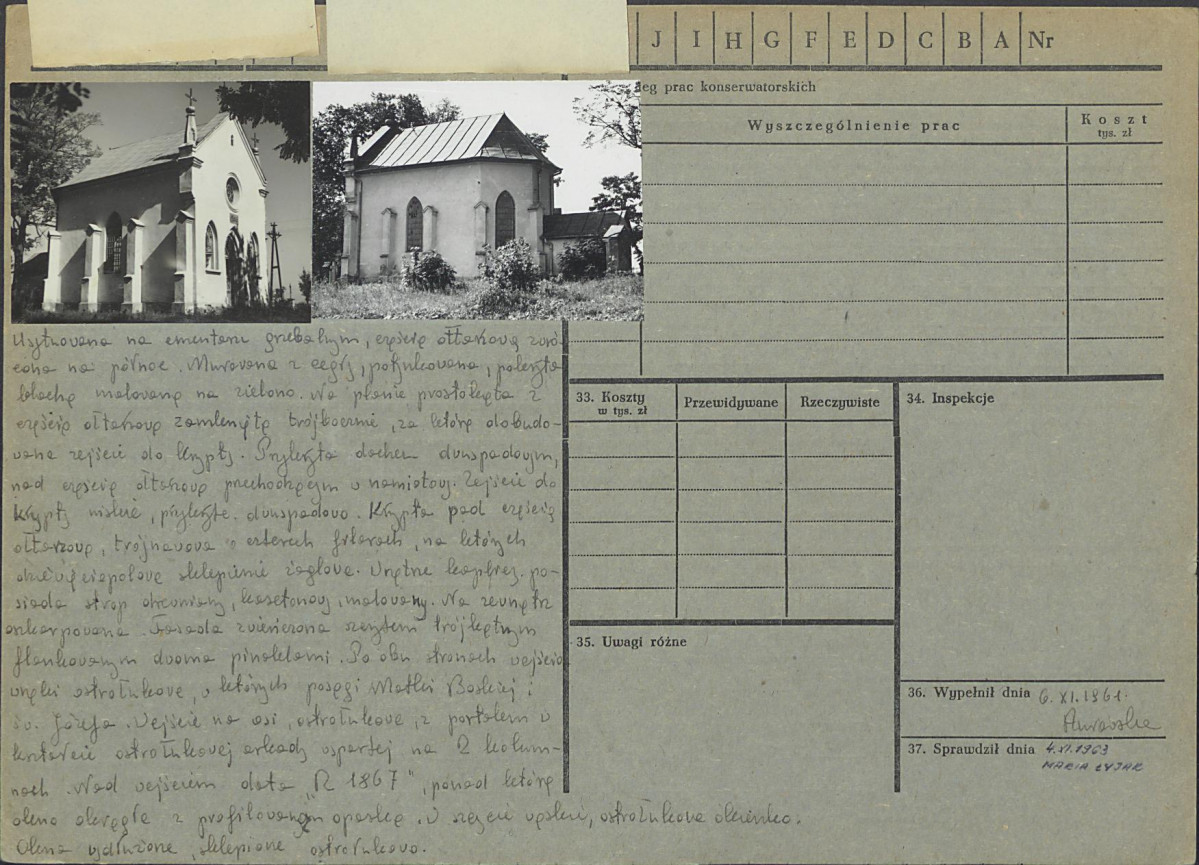 J I H G F E D C B A Nr
eg prac konserwatorskich
Wyszczególnienie prac
Koszt
tys. zł
Usytuowana na cmentarzu grzebalnym, częścią ołtarzową zwró-
cona na północ. Murowana z cegły, potynkowana, pokryta
blachą malowaną na zielono. Na planie prostokąta z
częścią ołtarzową zamkniętą trójbocznie, za którą dobudo-
wane zejście do krypty. Przykryta dachem dwuspadowym,
nad częścią ołtarzową przechodzącym w namiotowy. Zejście do
krypty niskie, przykryte dwuspadowo. Krypta pod częścią
ołtarzową, trójnawowa o czterech filarach, na których
dziewięciopolowe sklepienie żaglowe. Wnętrze kaplicy po-
siada strop drewniany, kasetonowy, malowany. Na zewnątrz
oszkarpowana. Fasada zwieńczona szczytem trójkątnym
flankowanym dwoma pinaklami. Po obu stronach wejścia
wnęki ostrołukowe, w których posągi Matki Boskiej i
św. Józefa. Wejście na osi, ostrołukowe, z portalem w
kształcie ostrołukowej arkady wspartej na 2 kolum-
nach. Nad wejściem data „R 1867", ponad którą
okno okrągłe z profilowaną opaską. W szczycie wąskie, ostrołukowe okienko.
Okna wydłużone, sklepione ostrołukowo.
33. Koszty
w tys. zł
Przewidywane
Rzeczywiste
34. Inspekcje
35. Uwagi różne
36. Wypełnił dnia 6. XI. 1961.
37. Sprawdził dnia 4.XI.1963
MARIA ŁYJAK